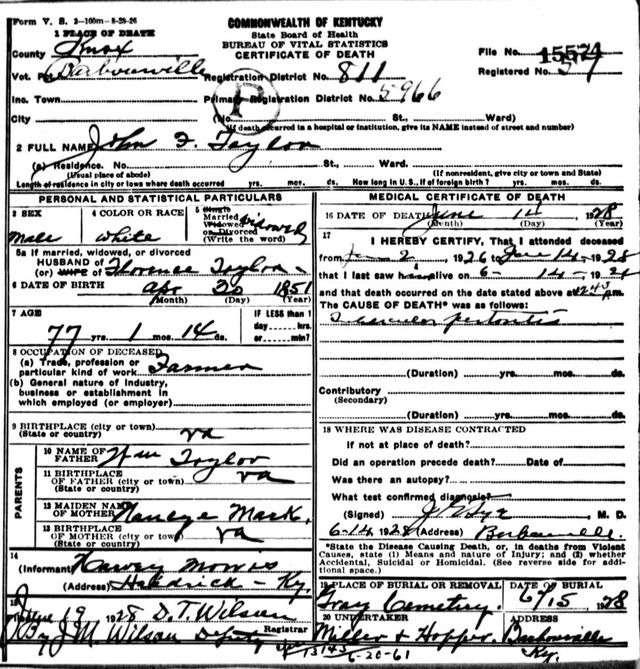 Form V. S. 2-100m-8-28-26
COMMONWEALTH OF KENTUCKY
State Board of Health
BUREAU OF VITAL STATISTICS
CERTIFICATE OF DEATH
1 PLACE OF DEATH
County Knox
File No. 15574
Vot. Barbourville Registration District No. 811
Registered No. 57
Inc. Town Primary Registration District No. 5966
P
City (No. St., Ward)
(If death occurred in a hospital or institution, give its NAME instead of street and number)
2 FULL NAME John F. Taylor
(a) Residence. No. St., Ward.
(Usual place of abode) (If nonresident, give city or town and State)
Length of residence in city or town where death occurred yrs. mos. ds. How long in U. S., if of foreign birth? yrs. mos. ds.
PERSONAL AND STATISTICAL PARTICULARS
3 SEX Male
4 COLOR OR RACE White
5 Single Married Widowed or Divorced (Write the word) Widowed
5a If married, widowed, or divorced
HUSBAND of
(or) WIFE of Florence Taylor
6 DATE OF BIRTH Apr 30 1851
(Month) (Day) (Year)
7 AGE IF LESS than 1
77 yrs. 1 mos. 14 ds.
day hrs.
or min.?
8 OCCUPATION OF DECEASED
(a) Trade, profession or
particular kind of work Farmer
(b) General nature of industry,
business or establishment in
which employed (or employer)
9 BIRTHPLACE (city or town)
(State or country) Va
PARENTS
10 NAME OF
FATHER Wm Taylor
11 BIRTHPLACE
OF FATHER (city or town) Va
(State or country)
12 MAIDEN NAME
OF MOTHER Mark
13 BIRTHPLACE
OF MOTHER (city or town) Va
(State or country)
14
(Informant) Harvey Morris
(Address) Ky.
15
June 19 1928 D. T. Wilson
By J M Wilson Deputy Registrar
MEDICAL CERTIFICATE OF DEATH
16 DATE OF DEATH June 14 1928
(Month) (Day) (Year)
17
I HEREBY CERTIFY, That I attended deceased
from Jan 2, 1926 to June 14, 1928
that I last saw h alive on 6-14-192
and that death occurred on the date stated above at 12:43 pm.
The CAUSE OF DEATH* was as follows:
Tubercular peritonitis
(Duration) yrs. mos. ds.
Contributory
(Secondary)
(Duration) yrs. mos. ds.
18 WHERE WAS DISEASE CONTRACTED
If not at place of death?
Did an operation precede death? Date of
Was there an autopsy?
What test confirmed diagnosis?
(Signed) M. D.
6-14 1928 (Address) Barbourville
*State the Disease Causing Death, or, in deaths from Violent
Causes, state (1) Means and nature of Injury; and (2) Whether
Accidental, Suicidal or Homicidal. (See reverse side for addi-
tional space.)
19 PLACE OF BURIAL OR REMOVAL DATE OF BURIAL
Gray Cemetery. 6/15 1928
20 UNDERTAKER ADDRESS
Miller & Hopper Barbourville
Ky.
13143 6-20-61